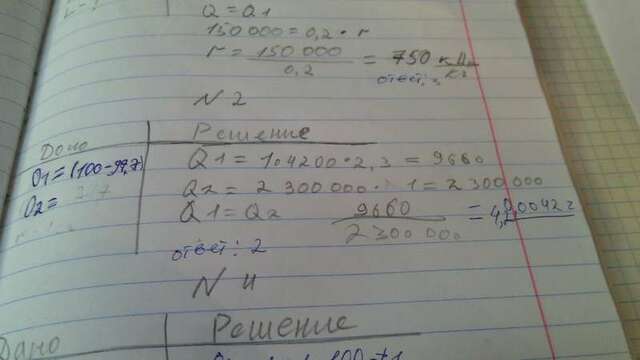 Q = Q1
150 000 = 0,2 · r
r = 150 000 / 0,2 = 750 кДж/кг
ответ: 3
N 2
Дано Решение
Q1 = (100-99,7)
Q2 =
Q1 = 1·4200·2,3 = 9660
Q2 = 2 300 000 · 1 = 2 300 000
Q1 = Q2 9660 / 2300 000 =
ответ: 2
N 4
Дано Решение